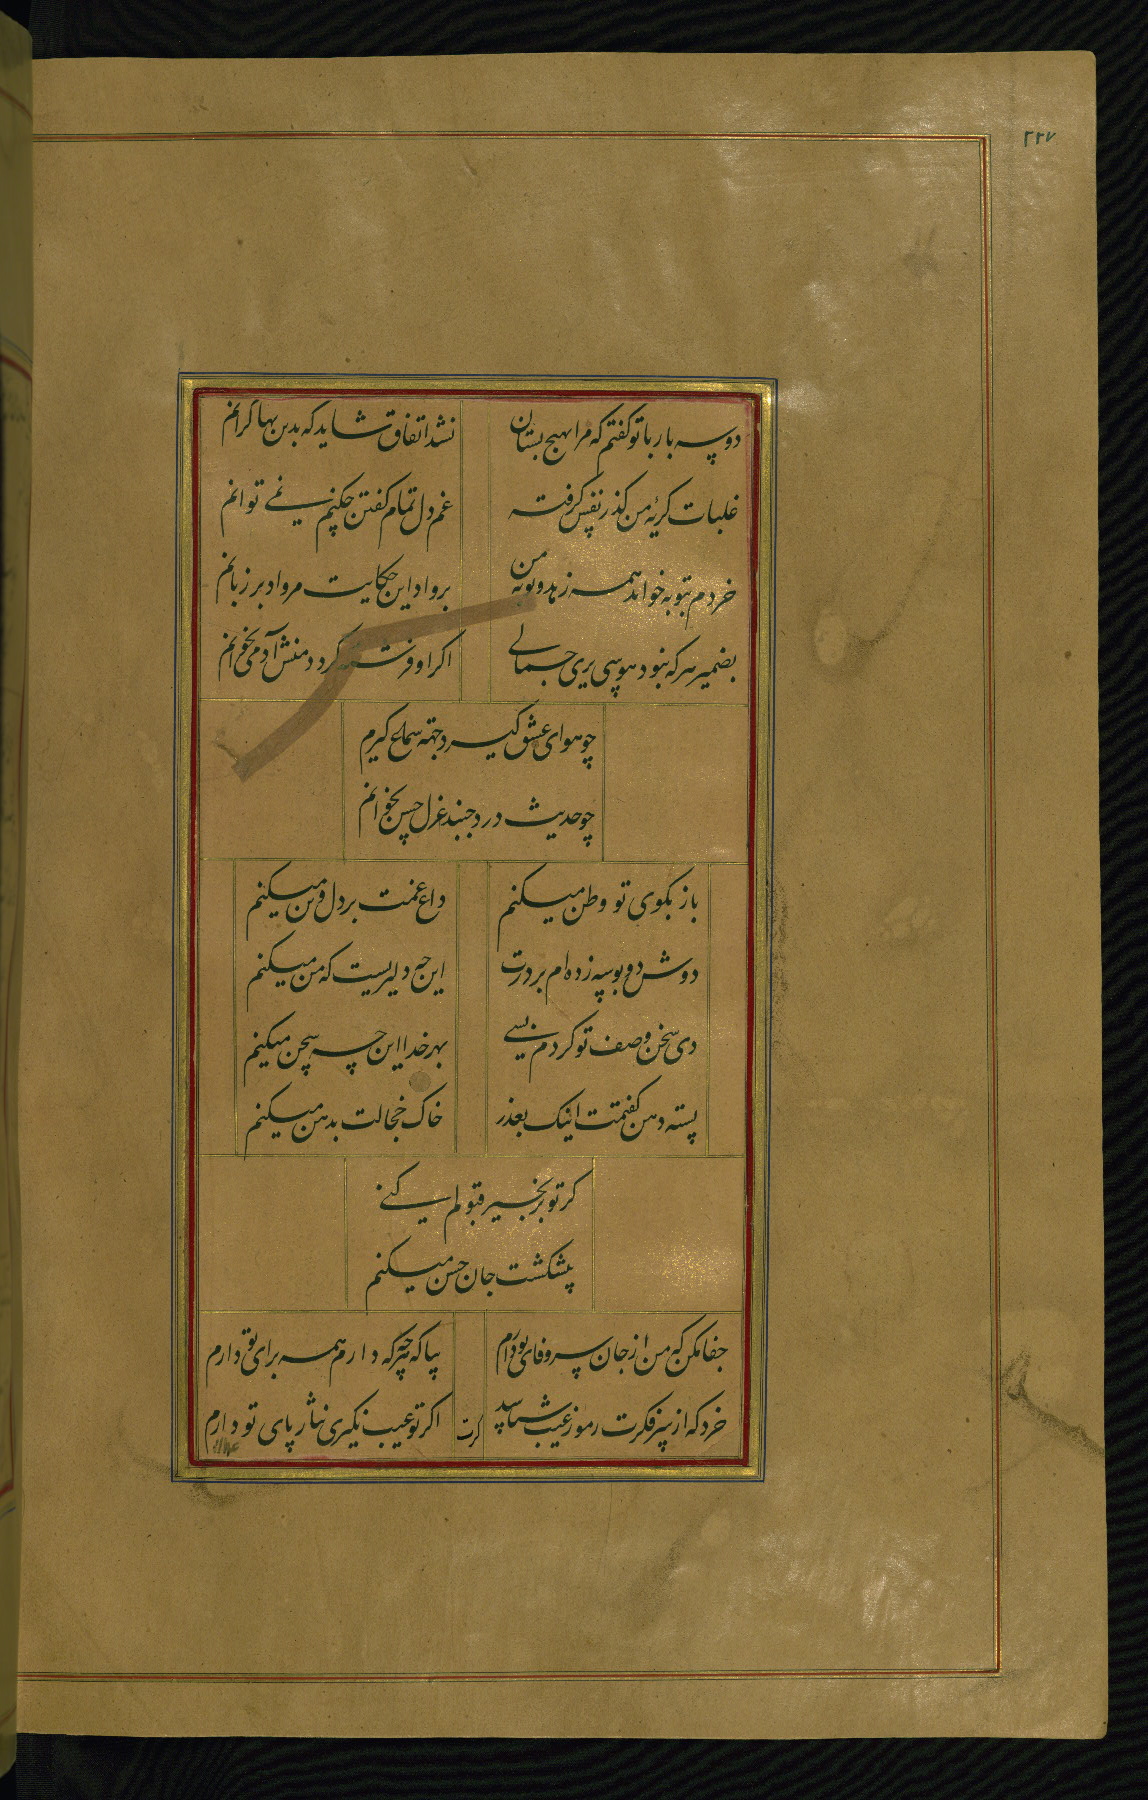 ۲۲۷
دو سه بار با تو گفتم که مرا بهیچ بستان نشد اتفاق شاید که بدین بها گرانم
غلبات گریهٔ من گذر نفس گرفته غم دل تمام گفتن چکنم نمی توانم
خردم بتوبه خواند همه زهد و توبه من برو ادا این حکایت مرواد بر زبانم
بضمیر هر که نبود هوسی پری جمالی اگر او فرشته گردد منش آدمی نخوانم
چو هوای عشق گیرد همه سماع گیرم
چو حدیث درد جنبد غزل حسن بخوانم
باز بکوی تو وطن میکنم داغ غمت بر دل و تن میکنم
دوش دو بوسه زده ام بر درت این چه دلیریست که من میکنم
دی سخن وصف تو کردم بسی بهر خدا این چه سخن میکنم
پسته دهن گفتمت اینک بعذر خاک خجالت بدهن میکنم
گر تو بخیر قبولم کنی
پیشکشت جان حسن میکنم
جفا مکن که من از جان سر وفای تو دارم بیا که هر چه که دارم همه برای تو دارم
خرد که از سر فکرت رموز غیب شناسد گرت اگر تو عیب نگیری نثار پای تو دارم